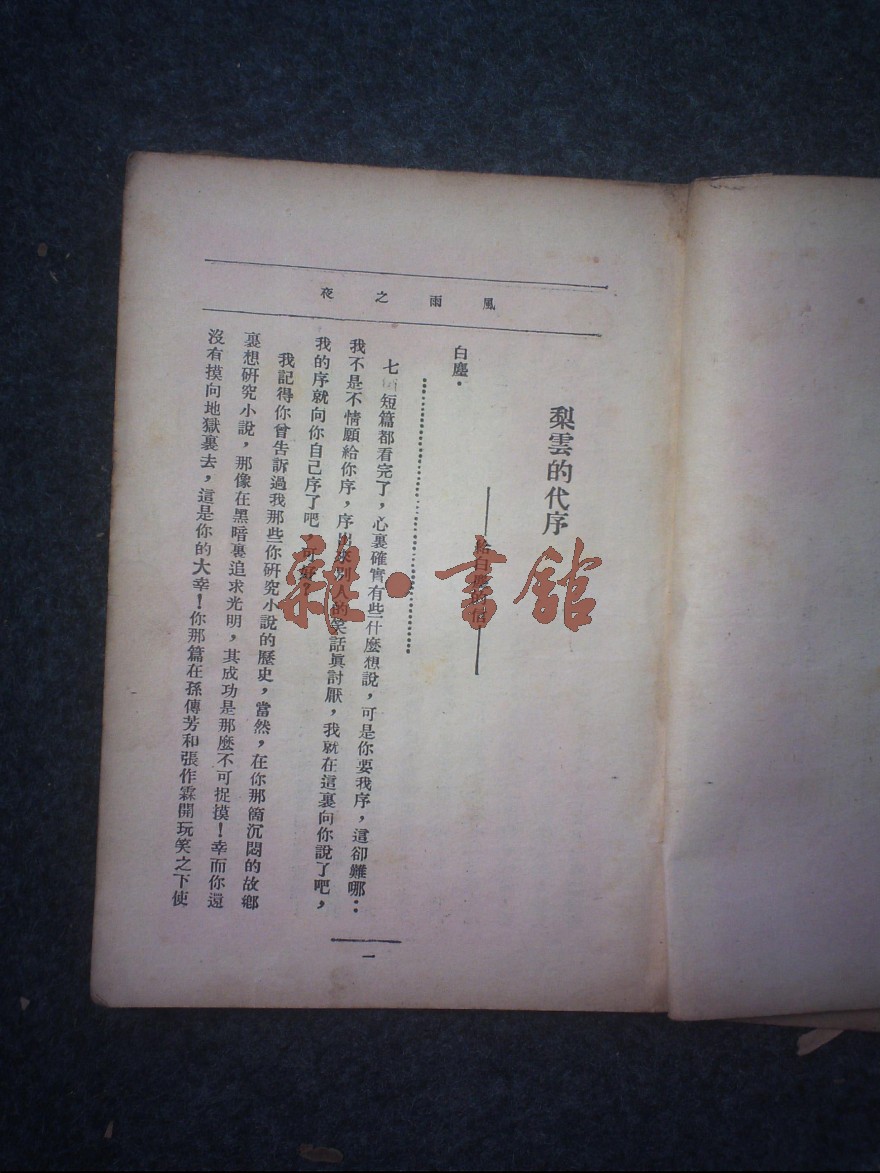 風雨之夜
梨雲的代序
——給白塵的信——
白塵·
七 短篇都看完了，心裏確實有些什麼想說，可是你要我序，這卻難哪：
我不是不情願給你序，序出來別人的笑話眞討厭，我就在這裏向你說了吧，
我的序就向你自己序了吧，可好？
我記得你曾告訴過我那些你研究小說的歷史，當然，在你那箇沉悶的故鄉
裏想研究小說，那像在黑暗裏追求光明，其成功是那麼不可捉摸！幸而你還
沒有摸向地獄裏去，這是你的大幸！你那篇在孫傳芳和張作霖開玩笑之下使
一
雜·書舘